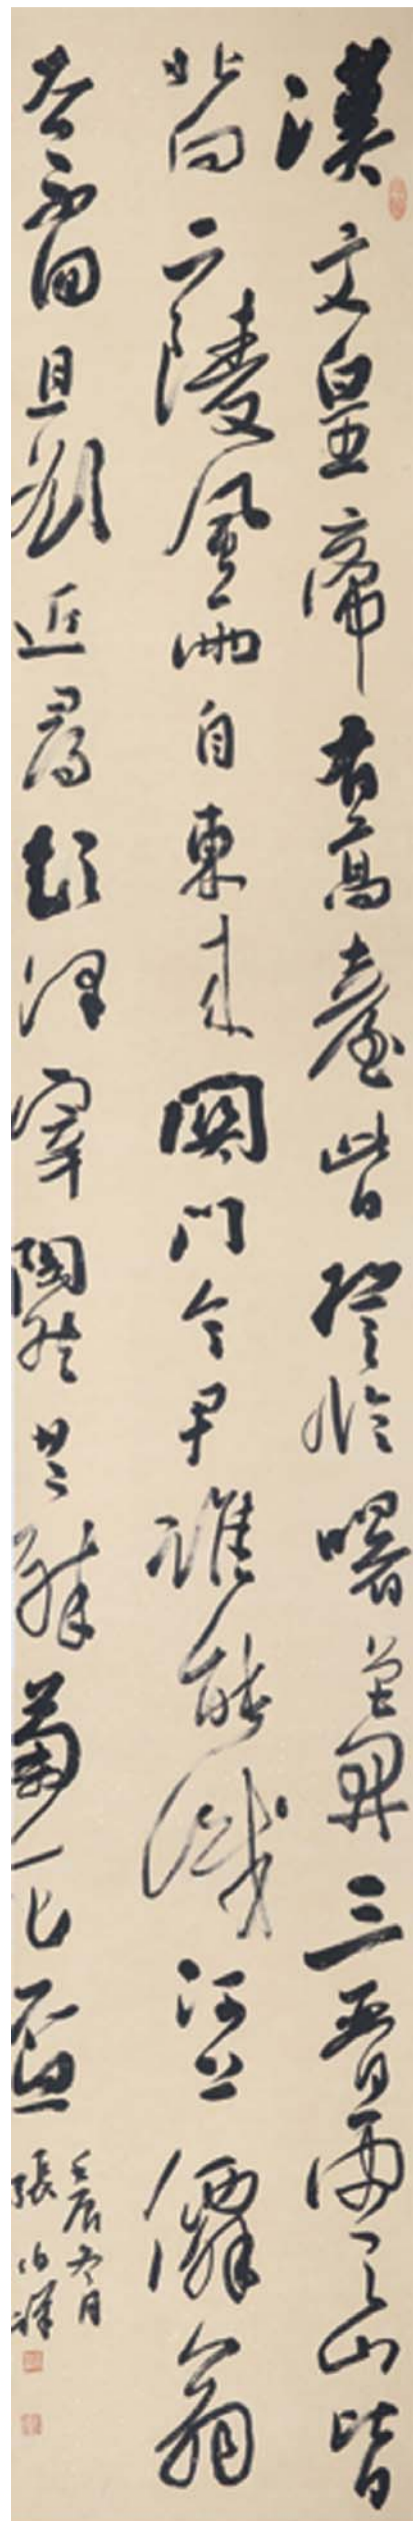 漢文皇帝有高臺此日登臨曙色開三晉雲山皆
北向二陵風雨自東來關門令尹誰能識河上僊翁
去不回且欲近尋彭澤宰陶然共醉菊花盃
壬辰冬月
張伯